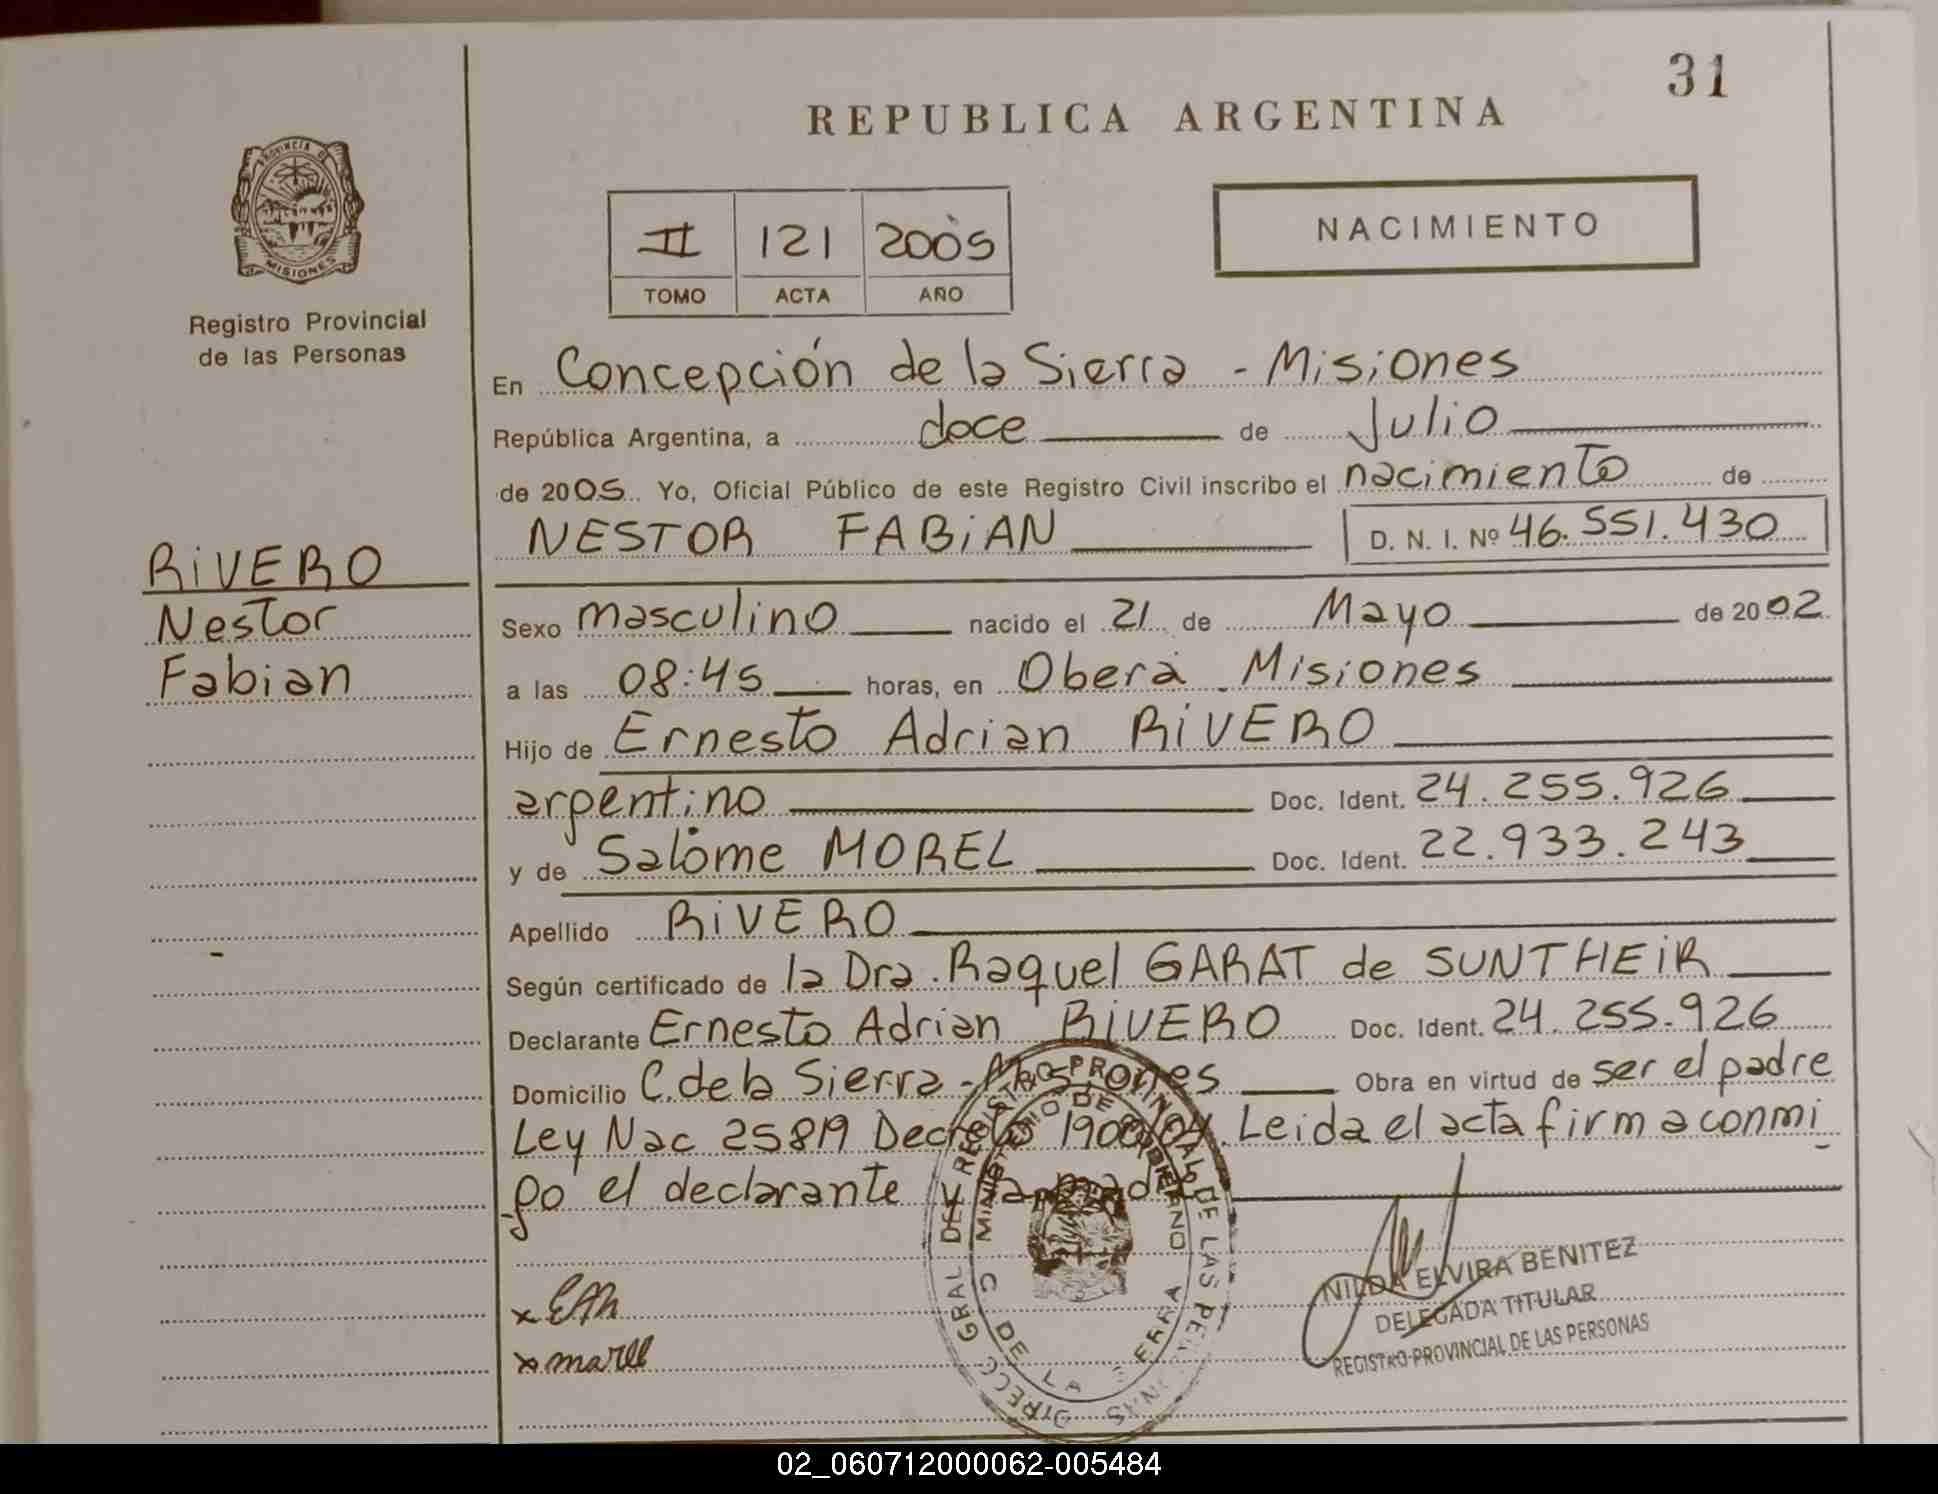 31
REPUBLICA ARGENTINA
PROVINCIA DE
MISIONES
Registro Provincial
de las Personas
NACIMIENTO
II 121 2005
TOMO ACTA AÑO
En Concepción de la Sierra - Misiones
República Argentina, a doce de Julio
de 2005 Yo, Oficial Público de este Registro Civil inscribo el nacimiento de
NESTOR FABiAN D. N. I. Nº 46.551.430
RiVERO
Nestor
Fabian
Sexo masculino nacido el 21 de Mayo de 2002
a las 08:45 horas, en Oberá Misiones
Hijo de Ernesto Adrian RiVERO
argentino Doc. Ident. 24.255.926
y de Salome MOREL Doc. Ident. 22.933.243
Apellido RiVERO
Según certificado de la Dra. Raquel GARAT de SUNTHEiR
Declarante Ernesto Adrian RiVERO Doc. Ident. 24.255.926
Domicilio C. de la Sierra - Misiones Obra en virtud de ser el padre
Ley Nac 25819 Decreto 1900/04. Leida el acta firma conmi
go el declarante y la madre
DIRECC GRAL DEL REGISTRO PROVINCIAL DE LAS PERSONAS
MINISTERIO DE GOBIERNO
C DE LA SIERRA
NILDA ELVIRA BENITEZ
DELEGADA TITULAR
REGISTRO PROVINCIAL DE LAS PERSONAS
02_060712000062-005484